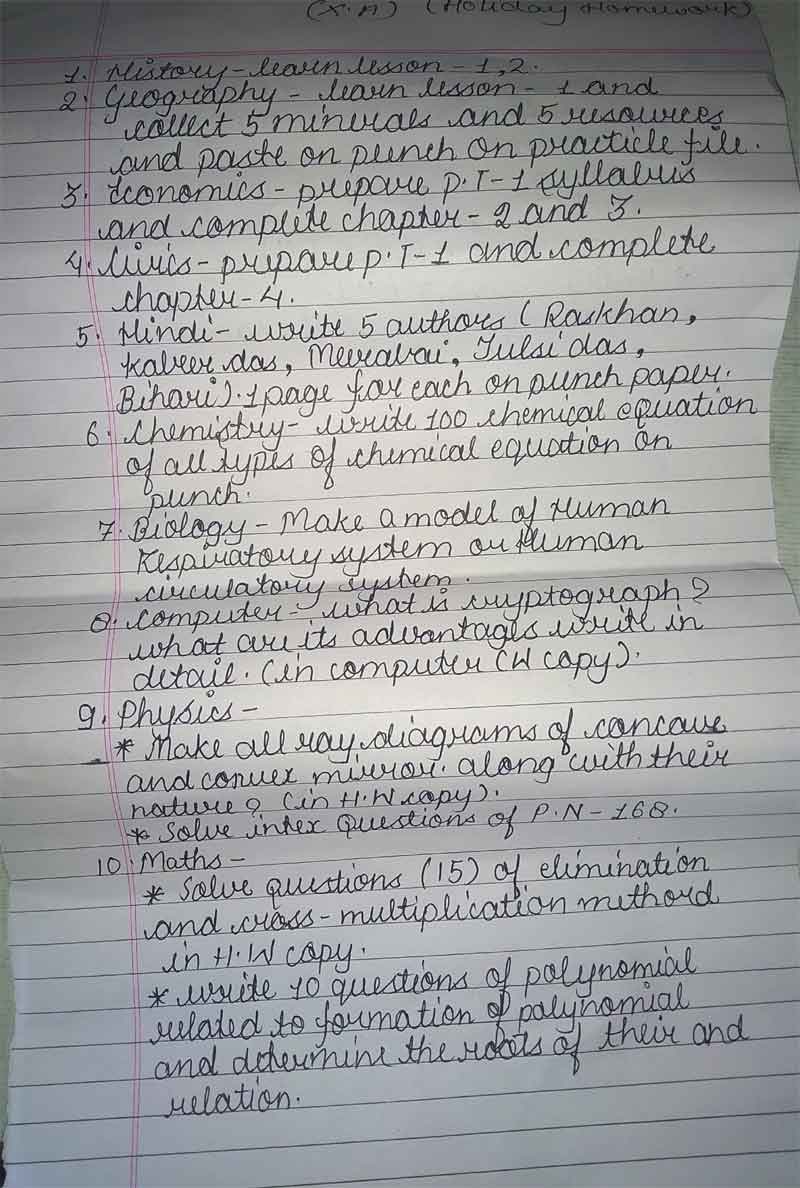 (X.A) (Holiday Homework)
1. History - learn lesson - 1,2.
2. Geography - learn lesson - 1 and
collect 5 minerals and 5 resources
and paste on punch on practicle file.
3. Economics - prepare P.T-1 syllabus
and complete chapter - 2 and 3.
4. Civics - prepare P.T-1 and complete
chapter - 4.
5. Hindi - write 5 authors (Raskhan,
Kabeer das, Meerabai, Tulsi das,
Bihari). 1 page for each on punch paper.
6. Chemistry - write 100 chemical equation
of all types of chemical equation on
punch.
7. Biology - Make a model of Human
Respiratory system or Human
circulatory system.
8. Computer - what is cryptograph?
what are its advantages write in
detail. (in computer CW copy).
9. Physics -
* Make all ray diagrams of concave
and convex mirror. along with their
nature? (in H.W copy).
* Solve intex Questions of P.N - 168.
10. Maths -
* Solve questions (15) of elimination
and cross - multiplication methord
in H.W copy.
* write 10 questions of polynomial
related to formation of polynomial
and determine the roots of their and
relation.